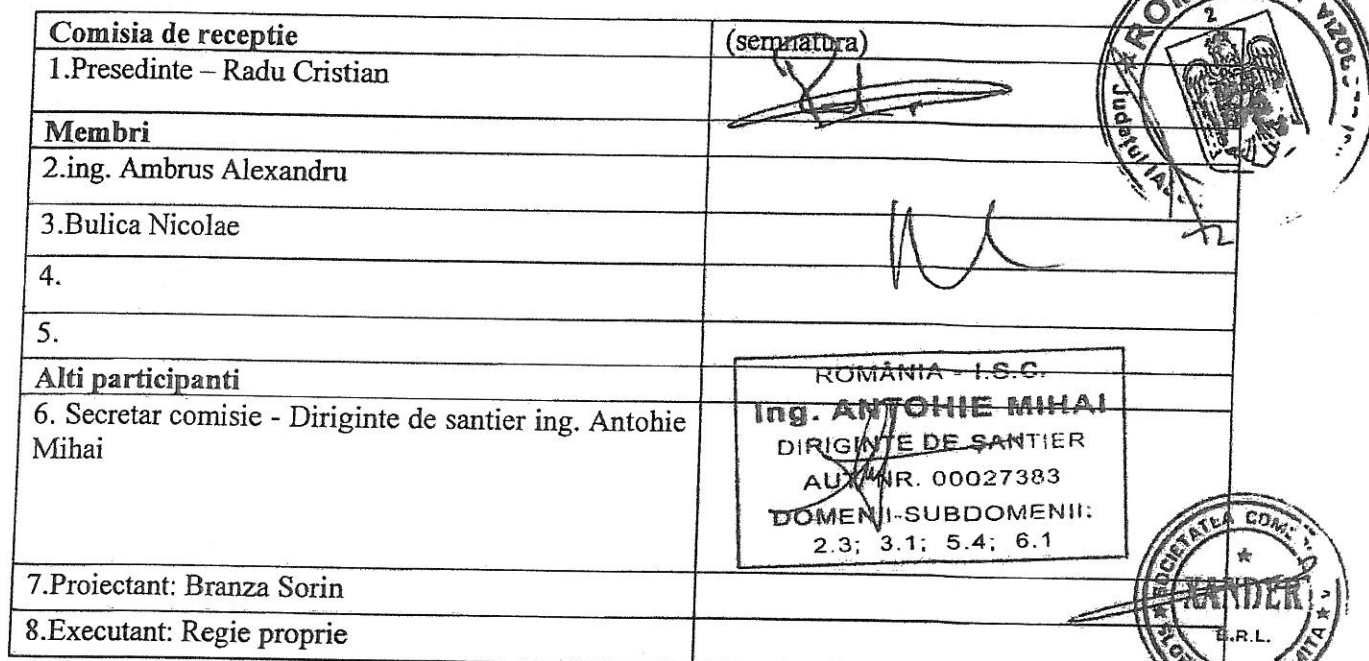 Comisia de receptie
(semnatura)
1.Presedinte – Radu Cristian
Membri
2.ing. Ambrus Alexandru
3.Bulica Nicolae
4.
5.
Alti participanti
6. Secretar comisie - Diriginte de santier ing. Antohie
Mihai
ROMÂNIA - I.S.C.
Ing. ANTOHIE MIHAI
DIRIGINTE DE ŞANTIER
AUT. NR. 00027383
DOMENII-SUBDOMENII:
2.3; 3.1; 5.4; 6.1
7.Proiectant: Branza Sorin
8.Executant: Regie proprie
2
Judeţul
SOCIETATEA
XANDER
S.R.L.